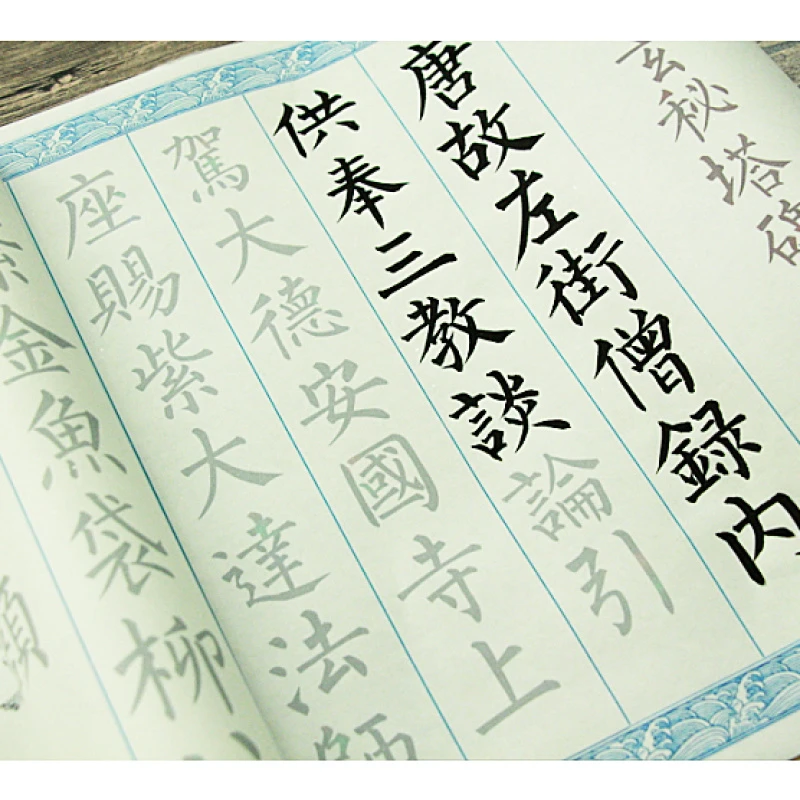 玄秘塔碑
唐故左街僧録内
供奉三教談論引
駕大德安國寺上
座賜紫大達法師
紫金魚袋柳
額